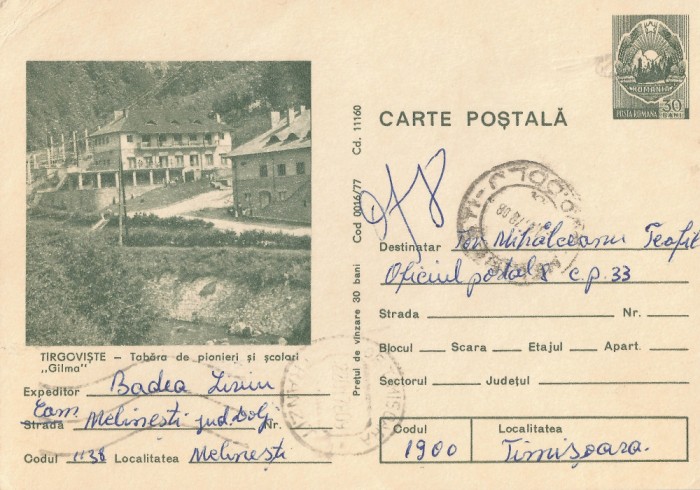 ROMANIA
POSTA ROMANA
30
BANI
CARTE POȘTALĂ
Cod. 11160
Cod 0016/77
Prețul de vînzare 30 bani
of 8
TÎRGOVIȘTE – Tabăra de pionieri și școlari
„Gilma"
Expeditor Badea Liviu
Com. Melinești jud. Dolj
Strada Nr.
Codul 1138 Localitatea Melinești
Destinatar Mihălceanu Teofil
Oficiul poștal 8 c.p. 33
Strada Nr.
Blocul Scara Etajul Apart.
Sectorul Județul
Codul Localitatea
1900 Timișoara.
TIMIȘOARA